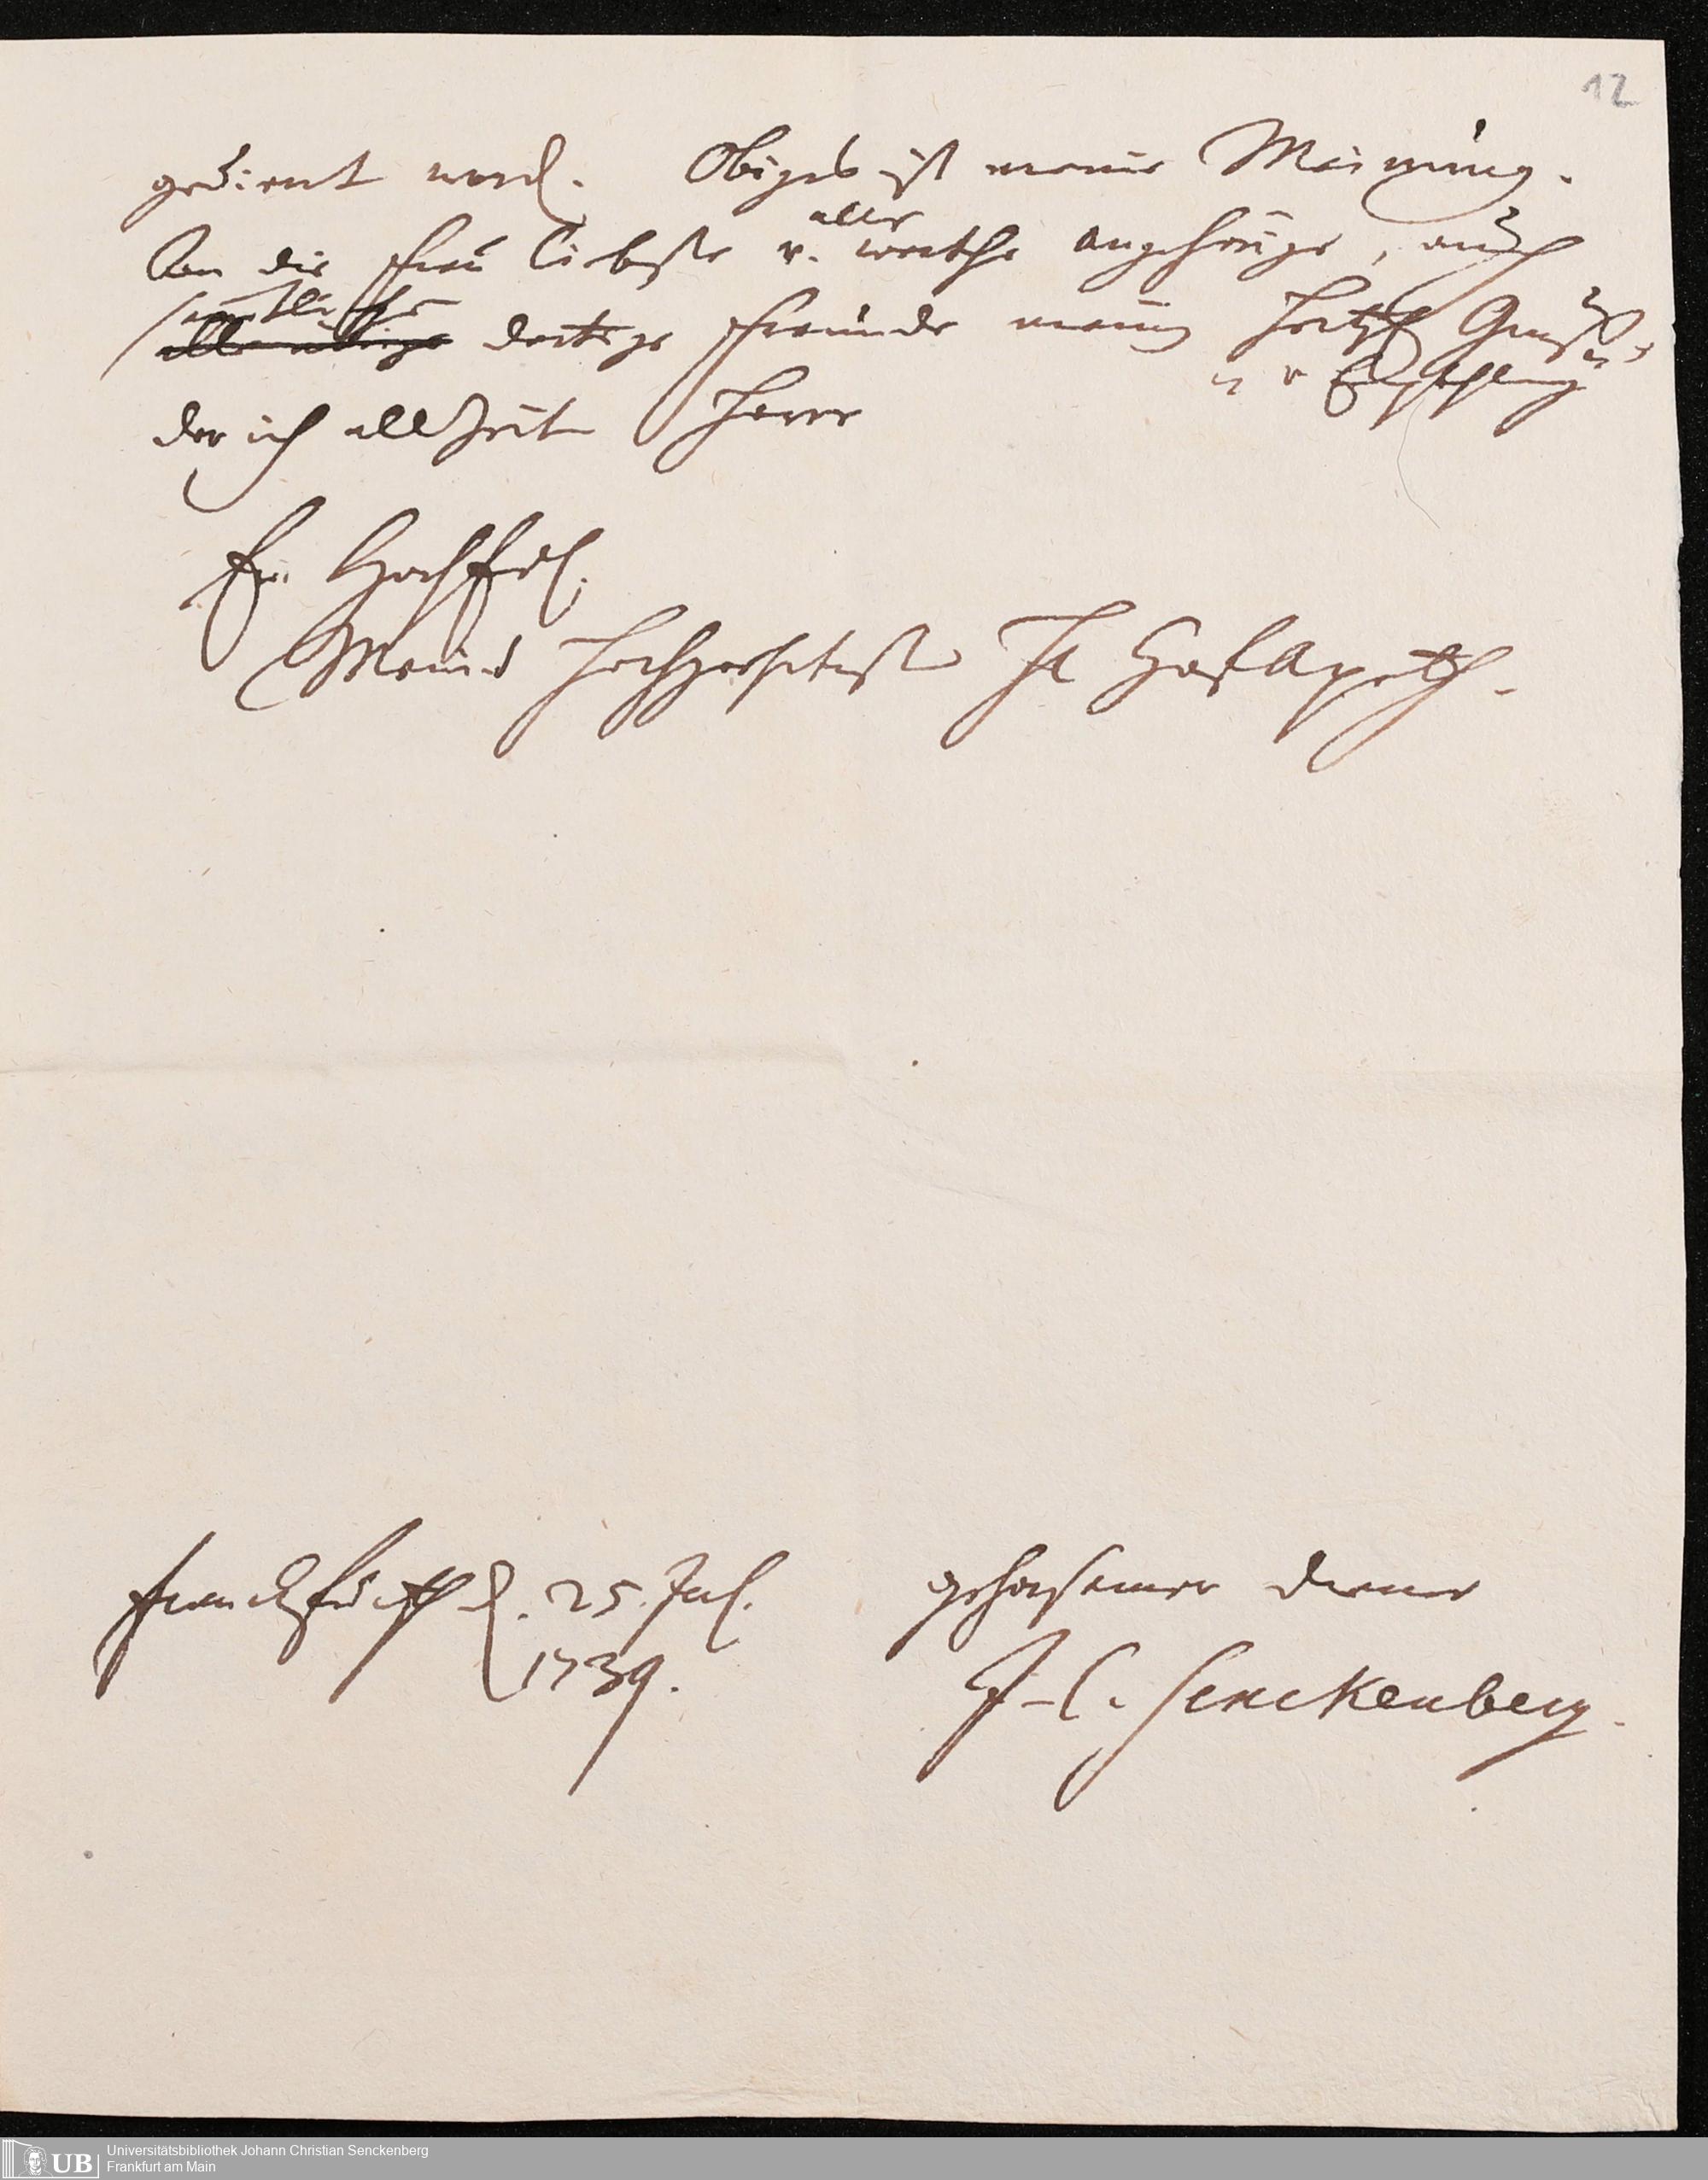 12
gedient werd. Obiges ist meine Meinung.
An die Frau Liebste u. alle werthe angehörige, auch
sämtliche alle übrige dortige Freunde meinen hertzl Gruß
u Empfehlung
der ich allzeit
Ew. HochEdl.
Meines Hochgeehrtest H Hofapoth.
Franckfurth d. 25. Jul.
1739.
gehorsamer diener
J. C. Senckenberg.
UB Universitätsbibliothek Johann Christian Senckenberg
Frankfurt am Main